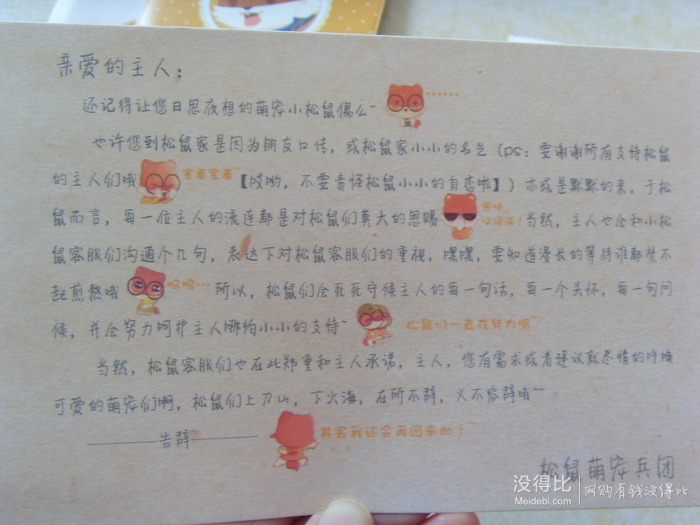 亲爱的主人：
还记得让您日思夜想的萌宠小松鼠偶么~ ……
也许您到松鼠家是因为朋友口传，或松鼠家小小的名气（ps：要谢谢所有支持松鼠
的主人们哦 害羞害羞【哎哟，不要责怪松鼠小小的自恋啦】）亦或是默默的来，于松
鼠而言，每一位主人的流连都是对松鼠们莫大的恩赐 当然，主人也会和小松
鼠客服们沟通个几句，表达下对松鼠客服们的重视，嘿嘿，要知道漫长的等待谁都禁不
起煎熬哦 呜呜… 所以，松鼠们会死死守候主人的每一句话，每一个关怀，每一句问
候，并会努力呵护主人哪怕小小的支持~ 松鼠们一直在努力哟~
当然，松鼠客服们也在此郑重和主人承诺，主人，您有需求或者建议敬尽情的呼唤
可爱的萌宠们啊，松鼠们上刀山，下火海，在所不辞，义不容辞哦~~
————告辞———— 其实我还会再回来的！~
松鼠萌宠兵团
没得比
Meidebi.com
网购有钱没得比